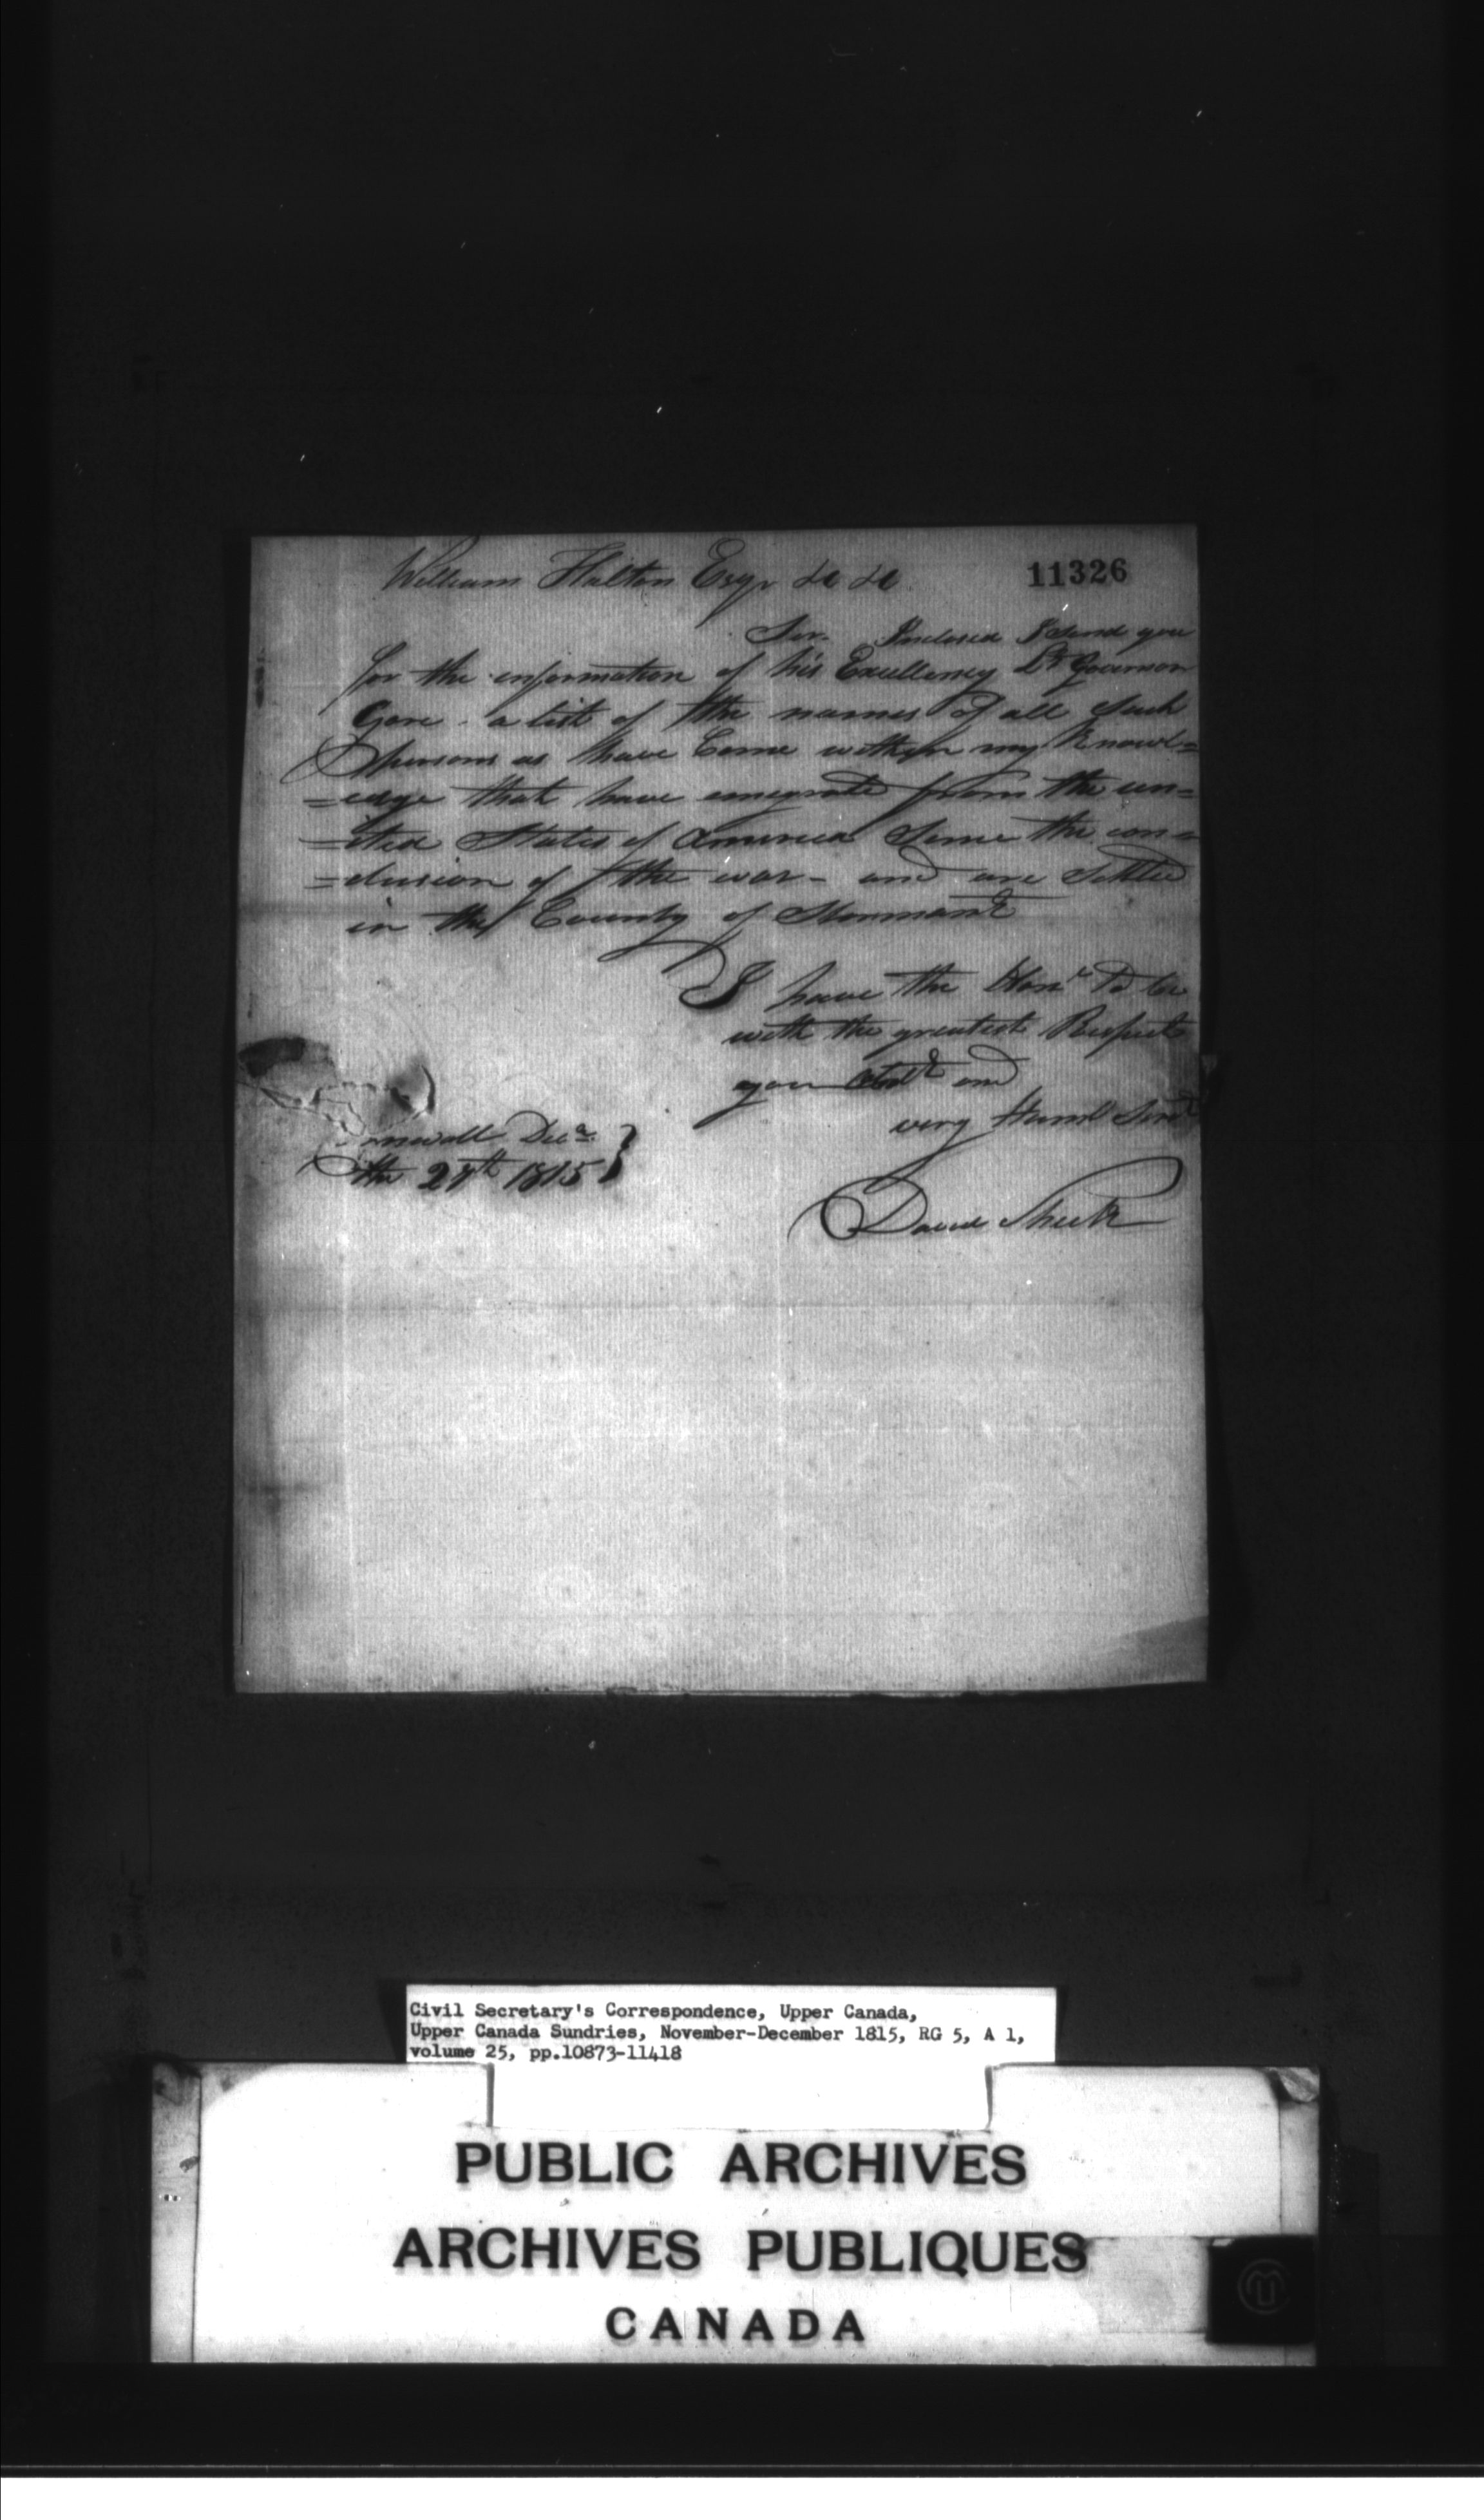 William Halton Esqr &c &c
11326
Sir. Inclosed I Send you
for the information of his Excellency Lt Governor
Gore - a list of the names of all Such
persons as have Come within my Knowl=
=edge that have emigrated from the un=
=ited States of America Since the con=
=clusion of the war - and are Settled
in the County of Stormont
I have the Honr To be
with the greatest Respect
your Obdt and
very Huml Servt
ornwall Decr
the 28th 1815
David Sheek
Civil Secretary's Correspondence, Upper Canada,
Upper Canada Sundries, November-December 1815, RG 5, A 1,
volume 25, pp.10873-11418
PUBLIC ARCHIVES
ARCHIVES PUBLIQUES
CANADA